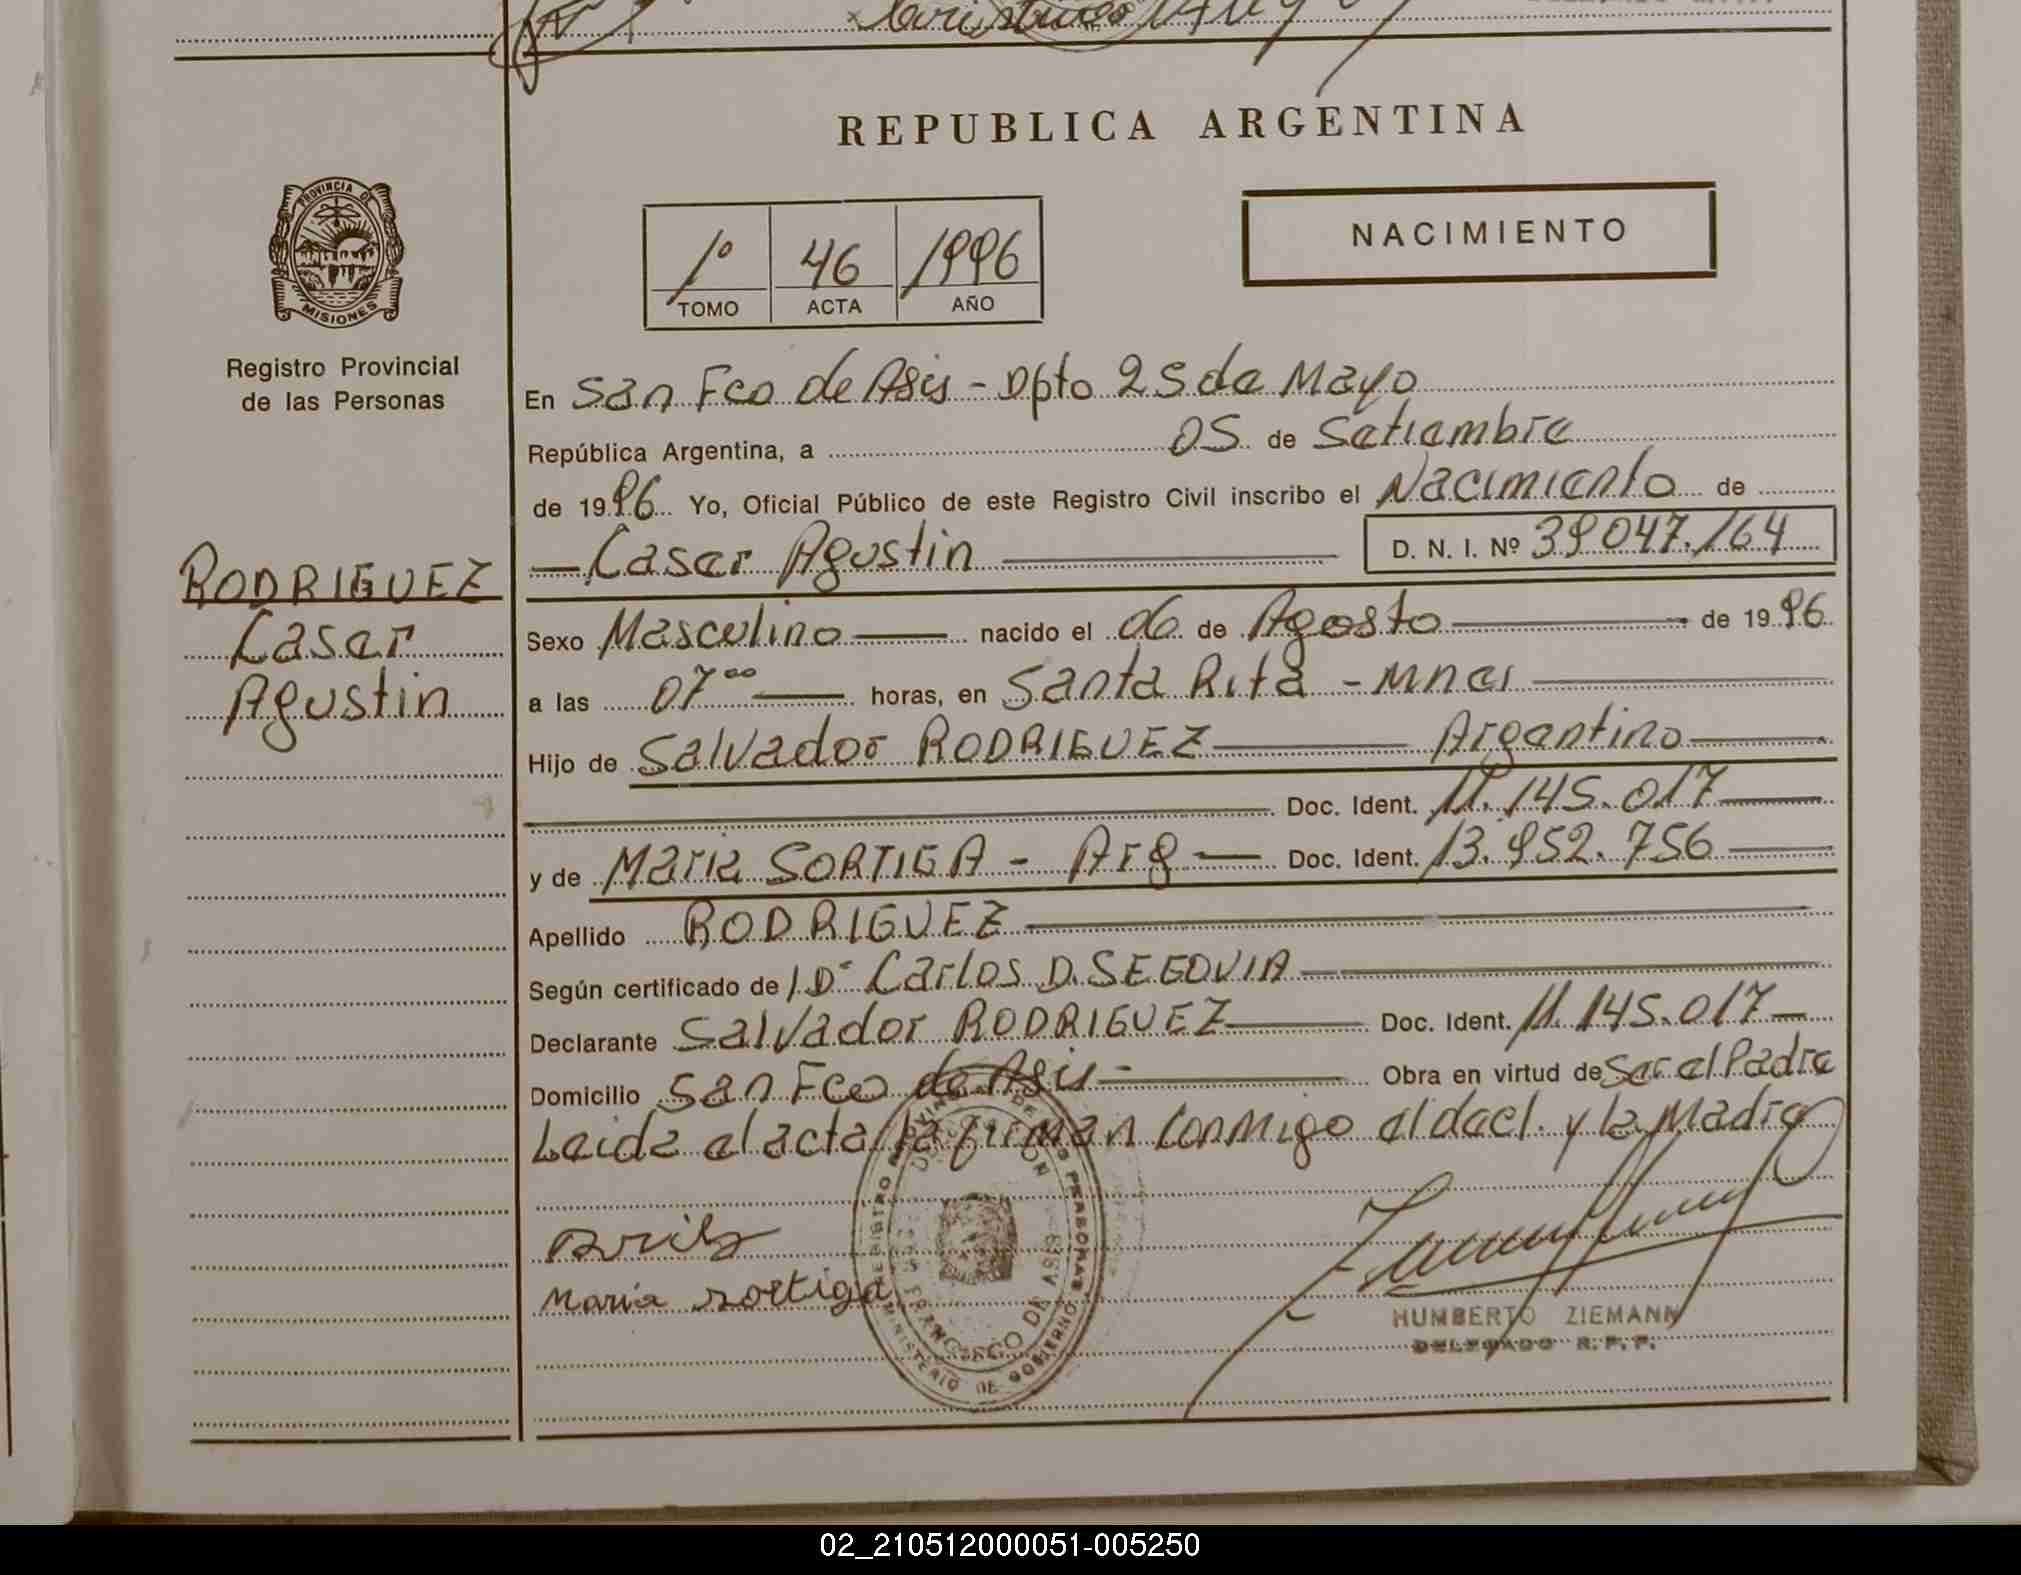 REPUBLICA ARGENTINA
PROVINCIA DE
MISIONES
Registro Provincial
de las Personas
1º 46 1996
TOMO ACTA AÑO
NACIMIENTO
RODRIGUEZ
Cesar
Agustin
En San Fco de Asis - Dpto 25 de Mayo
República Argentina, a 05 de Setiembre
de 1996 Yo, Oficial Público de este Registro Civil inscribo el Nacimiento de
Cesar Agustin D. N. I. Nº 39047.164
Sexo Masculino nacido el 06 de Agosto de 1996
a las 07 ºº horas, en Santa Rita - Mnes
Hijo de Salvador RODRIGUEZ Argentino
Doc. Ident. 11.145.017
y de Maria SORTIGA - Arg Doc. Ident. 13.952.756
Apellido RODRIGUEZ
Según certificado de Dr Carlos D. SEGOVIA
Declarante Salvador RODRIGUEZ Doc. Ident. 11.145.017
Domicilio San Fco de Asis - Obra en virtud de Ser el Padre
Leida el acta la firman conmigo el decl. y la Madre
Maria Sortiga
HUMBERTO ZIEMANN
DELEGADO R.P.P.
MINISTERIO DE GOBIERNO
02_210512000051-005250